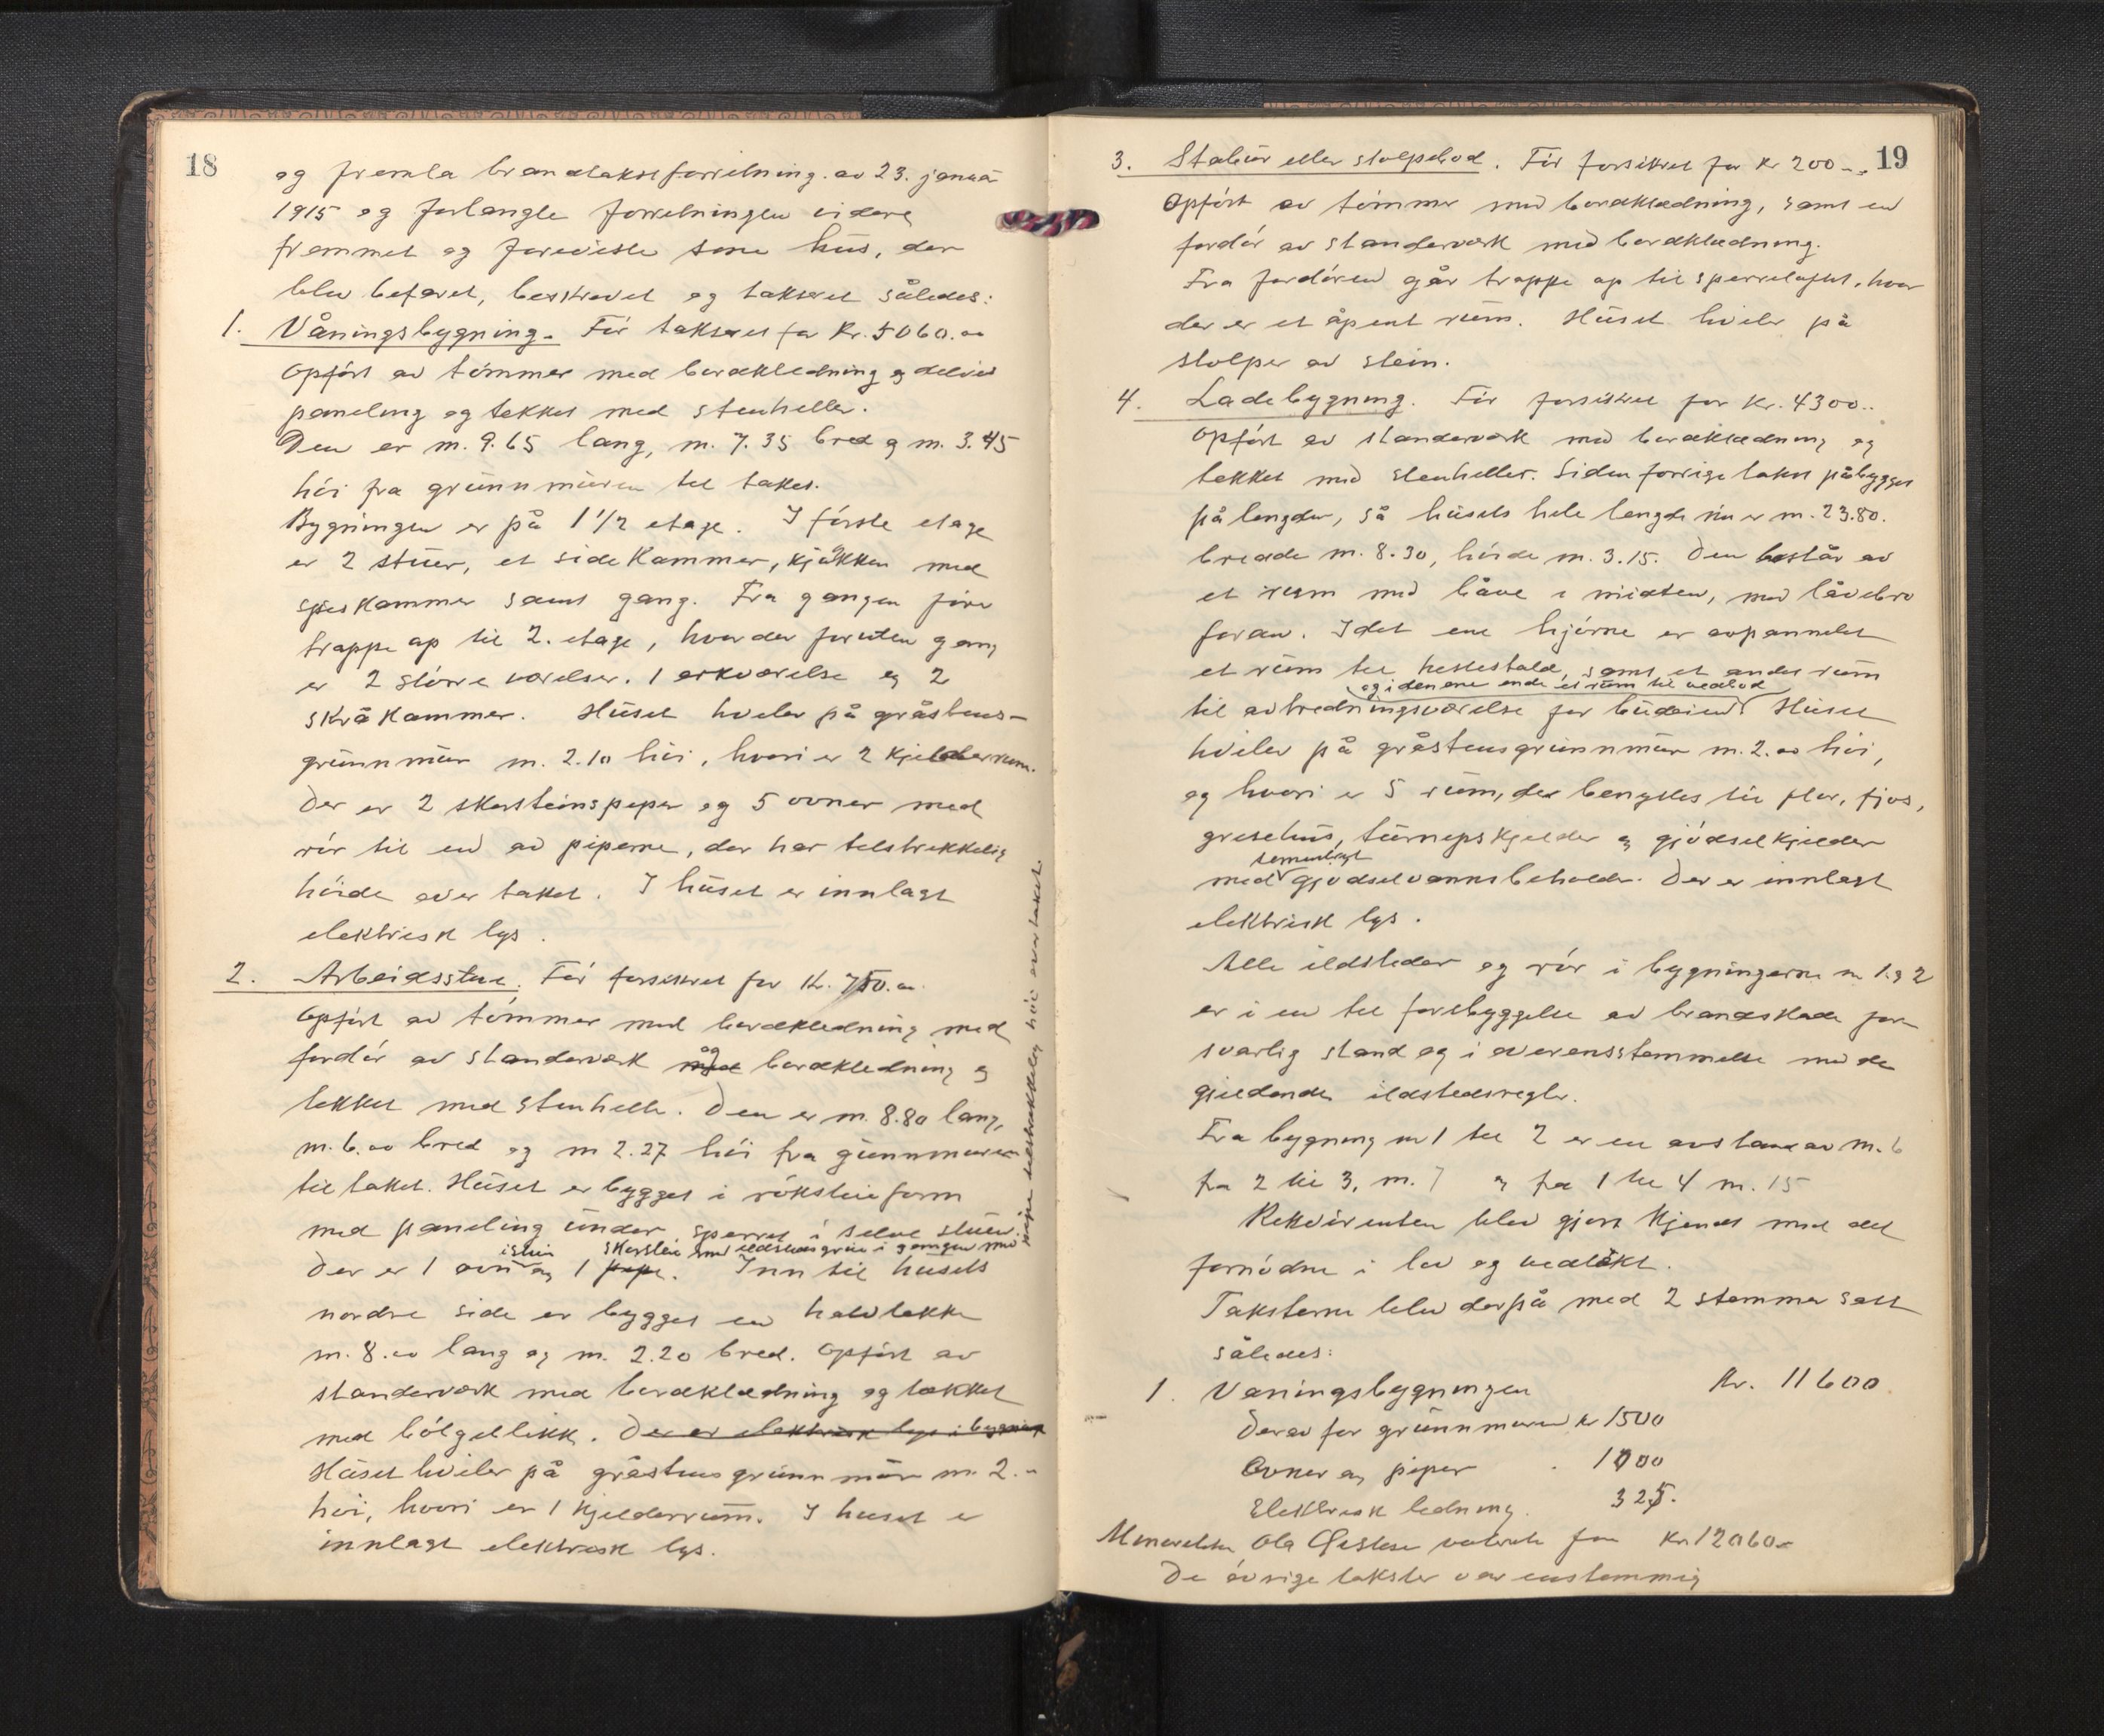 18
og fremla brandtakstforretning av 23. januar
1915 og forlangte forretningen videre
fremmet og foreviste sine hus, der
blev befaret, beskrevet og taksert således:
1. Våningsbygning. Før taksert for Kr. 5060.00
Opført av tømmer med bordkledning og delvis
paneling og tekket med stenheller.
Den er m. 9.65 lang, m. 7.35 bred og m. 3.45
høi fra grunnmuren til taket.
Bygningen er på 1 1/2 etage. I første etage
er 2 stuer, et sidekammer, kjøkken med
spiskammer samt gang. Fra gangen fører
trappe op til 2. etage, hvor der foruten gang
er 2 større værelser. 1 arkværelse og 2
skråkammer. Huset hviler på gråstens-
grunnmur m. 2.10 høi, hvori er 2 kjelderrum.
Der er 2 skorsteinspiper og 5 ovner med
rør til en av piperne, der har tilstrekkelig
høide over taket. I huset er innlagt
elektrisk lys.
2. Arbeidsstue. Før forsikret for Kr. 750.00
Opført av tømmer med bordkledning med
fordør av standerværk med og bordkledning og
tekket med stenhelle. Den er m. 8.80 lang,
m. 6.00 bred og m 2.27 høi fra grunnmuren
til taket. Huset er bygget i røkstueform
med paneling under sperret i selve stuen.
i stuen skorstein med ildstedsgrue i gangen med
pipe tilstrekkelig høi over taket.
Der er 1 ovn og 1 pipe. Inn til husets
nordre side er bygget en halvtekke
m. 8.00 lang og m. 2.20 bred. Opført av
standerværk med bordklædning og tækket
med bølgeblikk. Der er elektrisk lys i bygningen
Huset hviler på gråstens grunnmur m. 2.-
høi, hvori er 1 kjelderrum. I huset er
innlagt elektrisk lys.
19
3. Stabur eller stolpebod. Før forsikret for Kr 200-.
Opført av tømmer med bordklædning, samt en
fordør av standerværk med bordklædning.
Fra fordøren går trappe op til sperreloftet, hvor
der er et åpent rum. Huset hviler på
stolper av stein.
4. Ladebygning. Før forsikret for Kr. 4300..
Opført av standerværk med bordklædning og
tekket med stenheller. Siden forrige takst påbygget
på lengden, så husets hele lengde nu er m. 23.80.
bredde m. 8.30, høide m. 3.15. Den består av
et rum med låve i midten, med låvebro
foran. I det ene hjørne er avpannelet
et rum til hestestald, samt et andet rum
og i den ene ende et rum til vedbod
til avtredningsværelse for budeien. Huset
hviler på gråstensgrunnmur m. 2.00 høi,
og hvori er 5 rum, der benyttes til flor, fjos,
grisehus, turnepskjelder og gjødselkjelder
sementlagt
med gjødselvannsbeholder. Der er innlagt
elektrisk lys.
Alle ildsteder og rør i bygningerne nr 1 og 2
er i en til forebyggelse av brandskade for-
svarlig stand og i overensstemmelse med de
gjeldende ildstedsregler.
Fra bygning nr 1 til 2 er en avstand av m. 6
fra 2 til 3, m. 7 og fra 1 til 4 m. 15
Rekvirenten blev gjort kjendt med det
fornødne i lov og vedtekt.
Taksterne blev derpå med 2 stemmer satt
således:
1. Våningsbygningen Kr. 11600
Derav for grunnmuren kr 1500
Ovner og piper . 1000
Elektrisk ledning . 325.
Ola verdsatte for Kr. 12060-
De øvrige takster var enstemmig